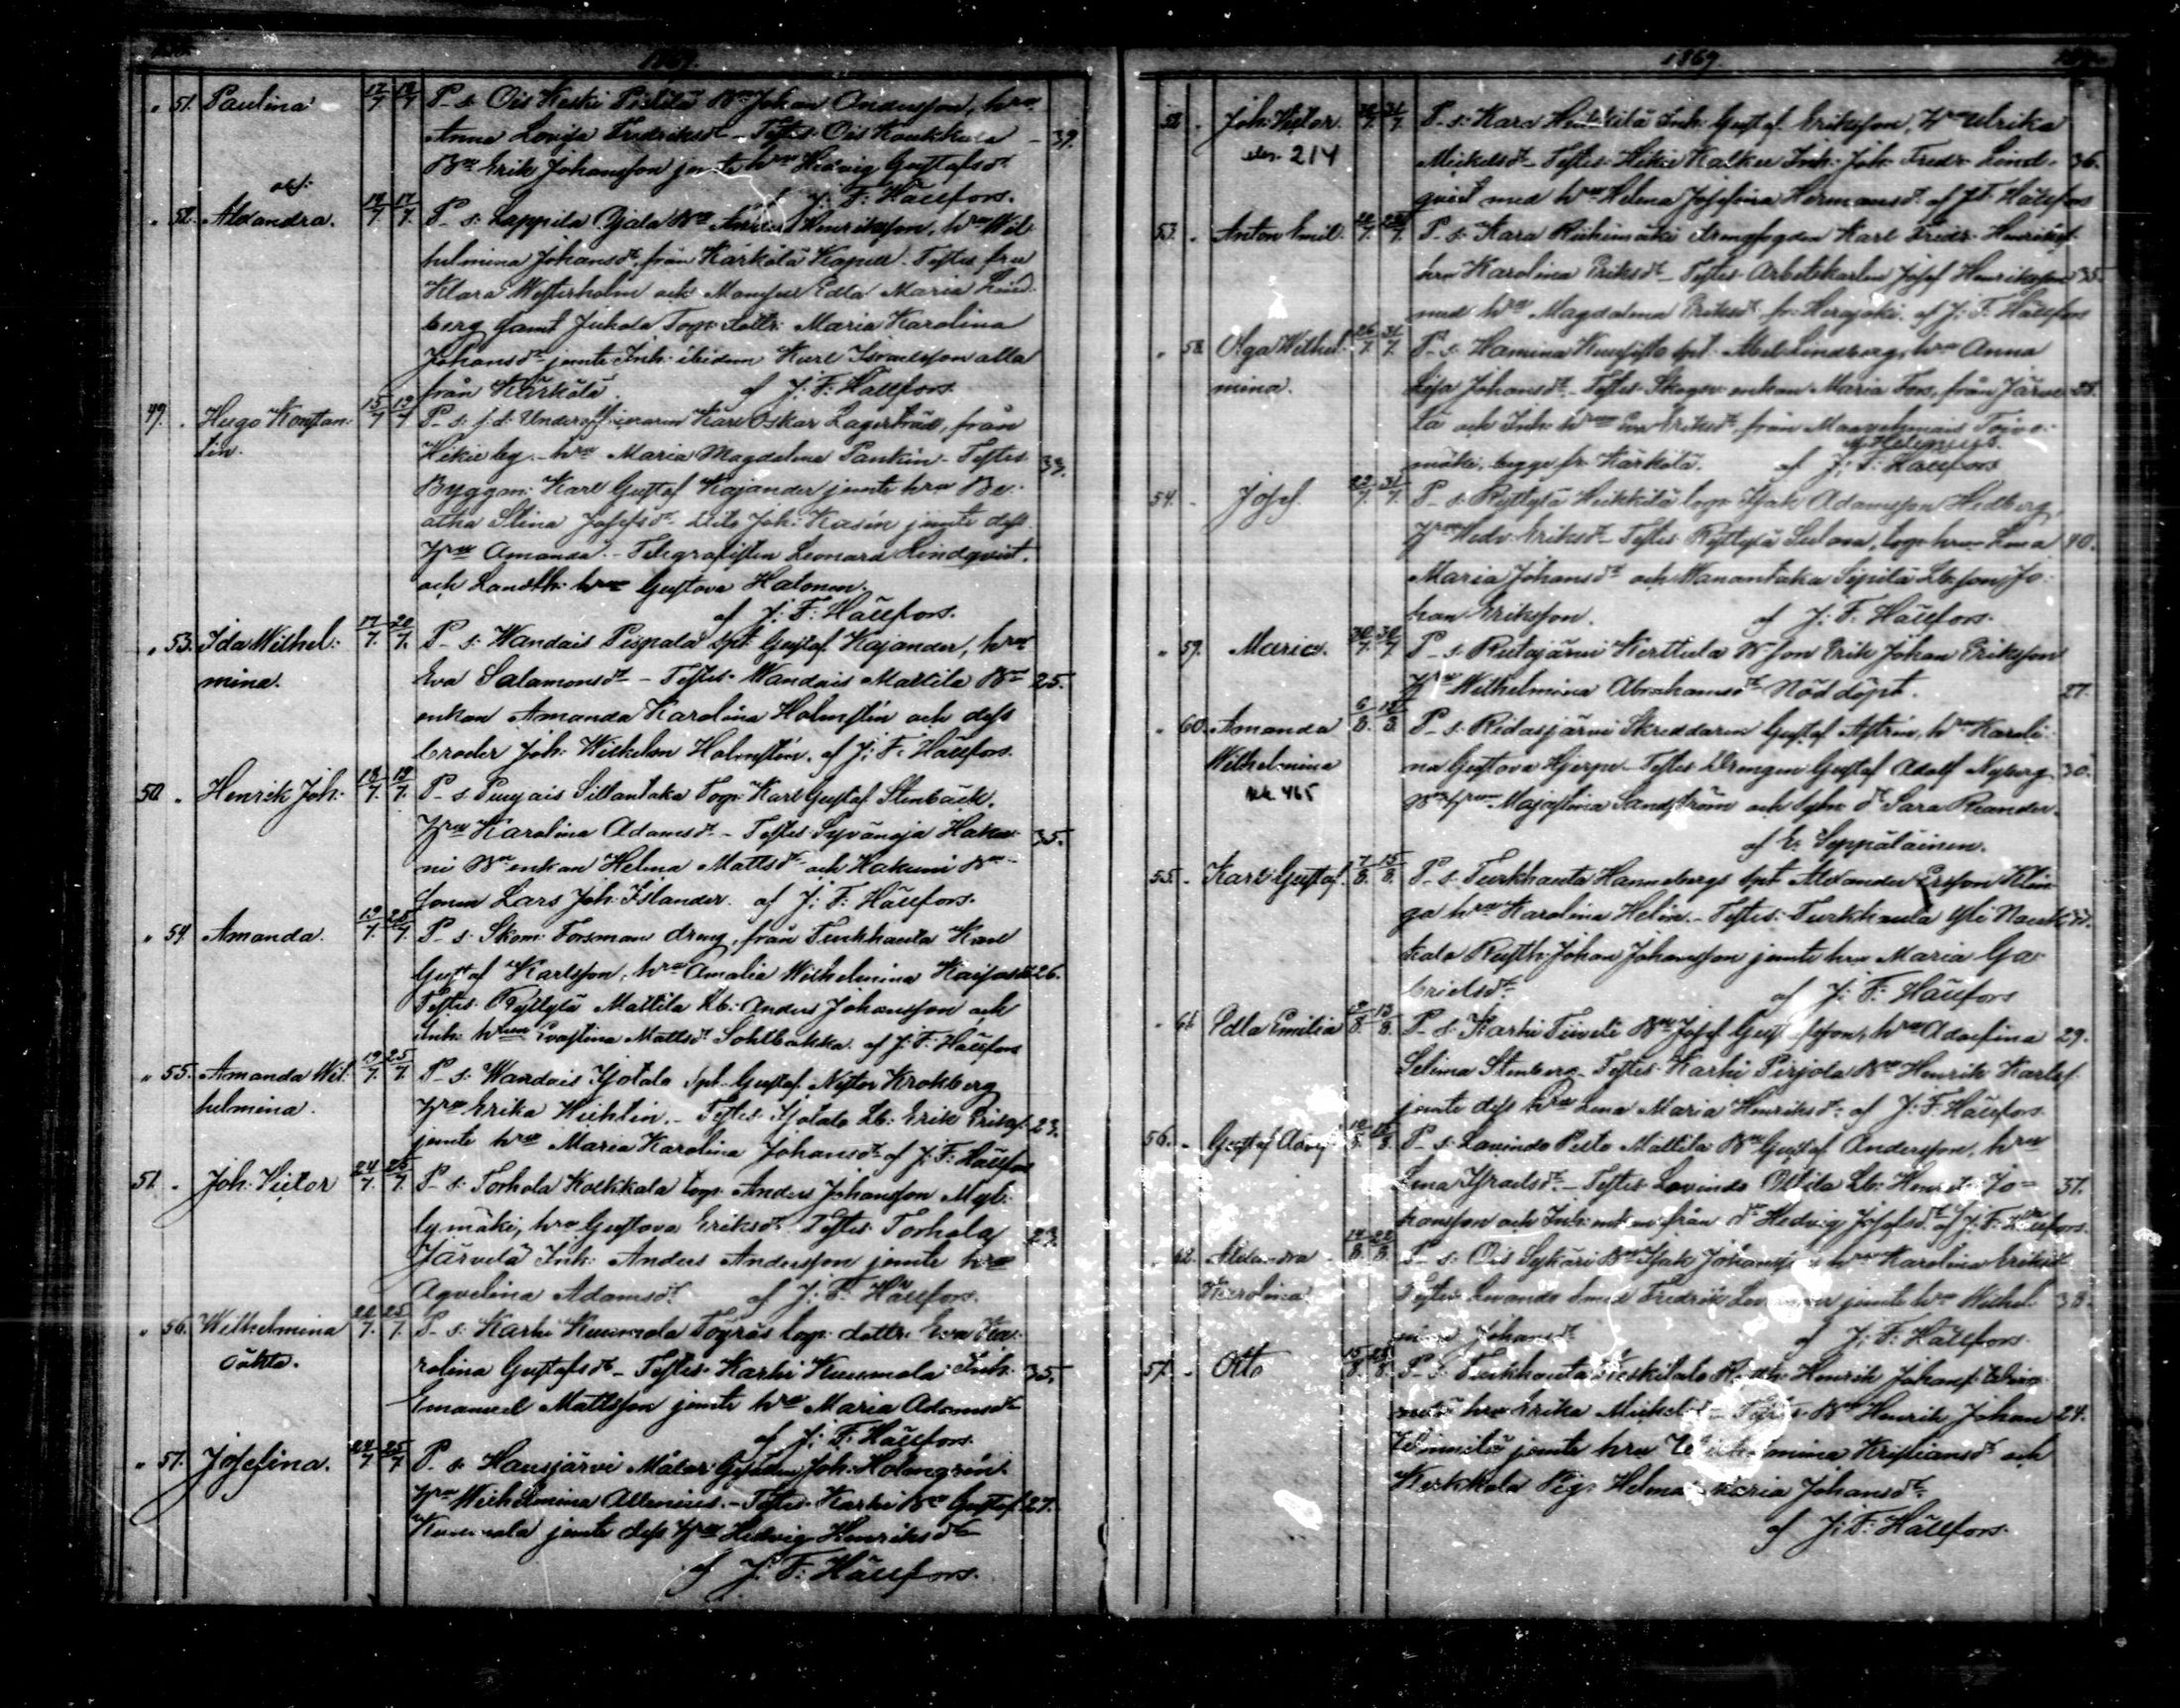 1869.
" 51. Paulina 12/7 18/7 P. s. Ois Keski Pietilä Bn Johan Andersson, hru
Anna Lovisa Fredriksdr - Testes: Ois Koukkula - 39.
Bn Erik Johansson jemte hru Hedvig Gustafsdr
af J: F: Hällfors.
" 52. Alexandra. 7. 17/7. P. s. Lappila Ojala Bn Anders Henriksson, hru Wil-
helmina Johansdr, från Kärkölä Kapell. Testes fru
Klara Westerholm och Mamsell Edla Maria Lind-
berg samt Juhola Torp: dottr: Maria Karolina
Johansdr jemte Inh: ibidem Karl Israelsson alla
från Kärkölä. af J: F: Hällfors.
49. " Hugo Konstan- 15/7 19/7 P. s. f.d. Underofficeraren Karl Oskar Lagerträd, från
tin. Hikie by. - hru Maria Magdalena Pankin - Testes 33.
Byggm: Karl Gustaf Kajander jemte hru Be-
atha Stina Josefsdr. Dito Joh: Kasén jemte dess
hru Amanda. - Telegrafisten Leonard Lindqvist.
och Landtb: hru Gustava Halonen.
af J: F: Hällfors.
" 53. Ida Wilhel- 17/7. 20/7. P. s. Wandais Pispala Spt Gustaf Kajander, hru
mina. Eva Salamonsdr - Testes: Wandais Mattila Bn 25.
enkan Amanda Karolina Holmstén och dess
broder Joh: Wilhelm Holmstén. af J: F: Hällfors.
50. " Henrik Joh: 18/7. 19/7. P. s. Puujais Sillantaka Torp: Karl Gustaf Stenbäck.
hru Karolina Adamsdr. - Testes: Syvänoja Haku- 35.
ni Bn enkan Helena Mattsdr och Hakuni Bn
sonen Lars Joh: Islander. af J: F: Hällfors.
" 54 Amanda. 19/7. 25/7. P. s. Skom: Forsman dreng, från Turkhauta Karl
Gustaf Karlsson, hru Amalia Wilhelmina 26.
Testes: Ryttylä Mattila Lb: Anders Johansson och
Inh: hru Evastina Mattsdr Sohlbakka. af J: F: Hällfors
" 55. Amanda Wil- 19/7. 25/7. P. s. Wandais Isotalo Spt Gustaf Nestor Krokberg
helmina. hru Erika Wichtin. - Testes: Isotalo Lb: Erik Eriksf. 23.
jemte hru Maria Karolina Johansdr af J: F: Hällfors
51. " Joh: Victor 24/7. 25/7. P. s. Torhola Kolkkala torp: Anders Johansson Myl-
lymäki, hru Gustava Eriksdr Testes: Torhola 23.
Järvelä Inh: Anders Andersson jemte hru
Agvelina Adamsdr. af J: F: Hällfors.
" 56. Wilhelmina 22/7. 25/7. P. s. Karhi Kuumola Töyräs torp: dottr: Eva Ka-
oäkta. rolina Gustafsdr - Testes: Karhi Kuumola Inh: 35.
Emanuel Mattsson jemte hru Maria Adamsdr
af J: F: Hällfors.
" 57. Josefina. 24/7. 25/7 P. s. Hausjärvi Målar Gesällen Joh: Holmgrén.
hru Wilhelmina Allenius. - Testes: Karhi Bn Gustaf 27.
Kuumola jemte dess hru Hedvig Henriksdr
af J: F: Hällfors.
1869
52. " Joh: Victor 7. 31/7. P. s. Kara Inh: Gustaf Eriksson, hru Ulrika
214 Mickelsdr - Testes: Hikie Kalkee Inh: Joh: Fredr: Lind- 36.
qvist med hru Helena Josefina Hermansdr. af J: F: Hällfors
53. " Anton Emil. 7. 7. P. s. Kara Riihimäki drengfogden Karl Fredr: Henriksf.
hru Karolina Eriksdr - Testes: Arbetskarlen Josef Henriksson 35.
med hru Magdalena Eriksdr fr. Herajoki. af J: F: Hällfors
" 58. Olga Wilhel- 26/7. 31/7. P. s. Hamina Kuusisto Spt: Abel Lindberg, hru Anna
mina. Lisa Johansdr. - Testes: Skogsv: enkan Maria Fors, från Järve- 28.
lä och Inh: hru Eva Eriksdr, från Maavehmais Toivo-
mäki, begge fr. Kärkölä. af J: F: Hällfors
54. - Josef. 29/7. 31/7. P. s. Ryttylä Heikkilä torp: Isak Adamsson Hedberg,
hru Hedv: Eriksdr Testes: Ryttylä torp: hru Lena 40.
Maria Johansdr och Wanantaka Sipilä Lb: son Jo-
han Eriksson. af J: F: Hällfors.
" 59. Maria. 30/7. 30/7. P. s. Rutajärvi Kerttula Bn son Erik Johan Eriksson
hru Wilhelmina Abrahamsdr Nöddöpt. 27.
" 60. Amanda 6/8. 12/8. P. s. Ridasjärvi Skreddaren Gustaf Astrén, hru Karoli-
Wilhelmina na Gustava Hjerpe - Testes: Drengen Gustaf Adolf Nyberg 30.
465 Majastina Sandström och dr Sara Reander.
af E: Seppäläinen.
55. - Karl Gustaf. 7/8. 15/8. P. s. Turkhauta Hannebergs Spt Alexander Ersson Klin-
ga hru Karolina Helin. - Testes: Turkhauta Yli
kala Rusth: Johan Johansson jemte hru Maria Ga-
brielsdr. af J: F: Hällfors
" 61. Edla Emilia 8. 8. P. s. Karhi Tiiveli Bn Josef Gustafsson, hru Adolfina 29.
Selima Stenberg - Testes: Karhi Perjola Bn Henrik Karlsf.
jemte dess hru Lena Maria Henriksdr. af J: F: Hällfors.
56. - Gustaf Adolf 10/8. 8. P. s. Lavinto Mattila Bn Gustaf Andersson, hru
Lena Israelsdr. - Testes: Lavinto Ollila Lb: Henrik Jo- 37.
hansson och Inh: enkan från Hedvig Josefsdr. af J: F: Hällfors.
" 62. Alexandra 14/8. 22/8. P. s. Ois Sykäri Bn Isak Johansson hru Karolina Eriksdr
Karolina Testes: Fredrik jemte hru Wilhel- 38.
mina Johansdr af J: F: Hällfors.
57. - Otto 15/8. 8. P. s. Turkhauta Keskitalo Rusth: Henrik Johansf.
hru Erika Mickelsdr Testes: Bn Henrik Johan 24.
jemte hru Wilhelmina Kristiansdr och
Kerkkola Pig: Helena Maria Johansdr.
af J: F: Hällfors.